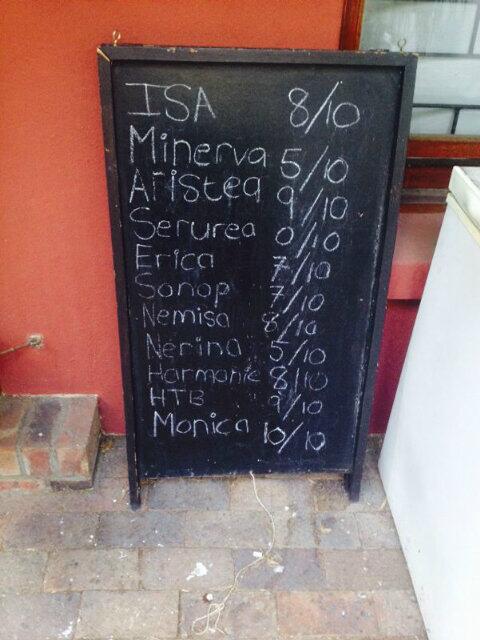 ISA 8/10
Minerva 5/10
Aristea 9/10
Serurea 0/10
Erica 7/10
Sonop 7/10
Nemisa 8/10
Nerina 5/10
Harmonie 8/10
HTB 9/10
Monica 10/10